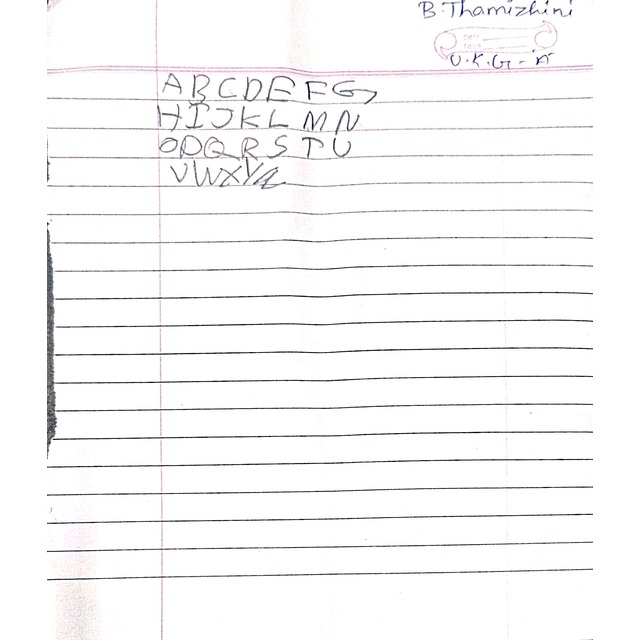 B. Thamizhini
Date
Page
U.K.G - A
A B C D E F G
H I J K L M N
O P Q R S T U
V W X Y Z